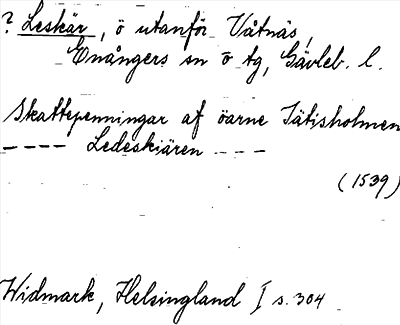 ? Leskär, ö utanför Våtnäs,
Enångers sn o tg, Gävleb. l.
Skattepenningar af öarne Tätisholmen
---- Ledeskiären ----
(1539)
Widmark, Helsingland I s. 304